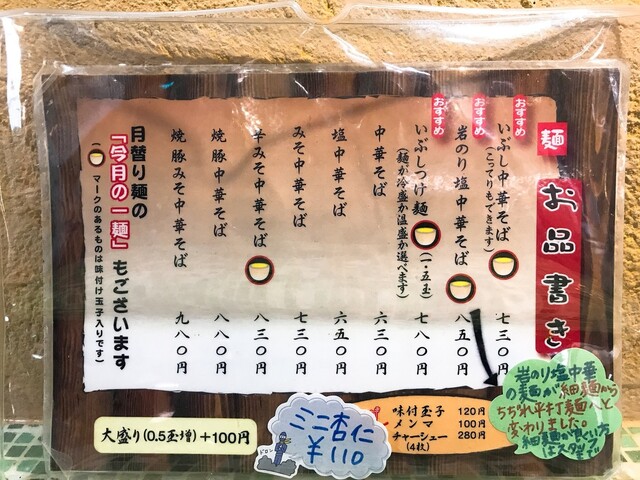 麺
お品書き
おすすめ
いぶし中華そば 七三〇円
(こってりもできます)
おすすめ
岩のり塩中華そば 八五〇円
おすすめ
いぶしつけ麺 (一・五玉) 七八〇円
(麺が冷盛か温盛か選べます)
中華そば 六三〇円
塩中華そば 六五〇円
みそ中華そば 七三〇円
辛みそ中華そば 八三〇円
焼豚中華そば 八八〇円
焼豚みそ中華そば 九八〇円
月替り麺の
「今月の一麺」もございます
( マークのあるものは味付け玉子入りです)
大盛り(0.5玉増)+100円
ミニ杏仁
¥110
味付玉子 120円
メンマ 100円
チャーシュー 280円
(4枚)
岩のり塩中華
の麺が細麺から
ちぢれ平打麺へと
変わりました。
細麺が良い方
はスタッフまで